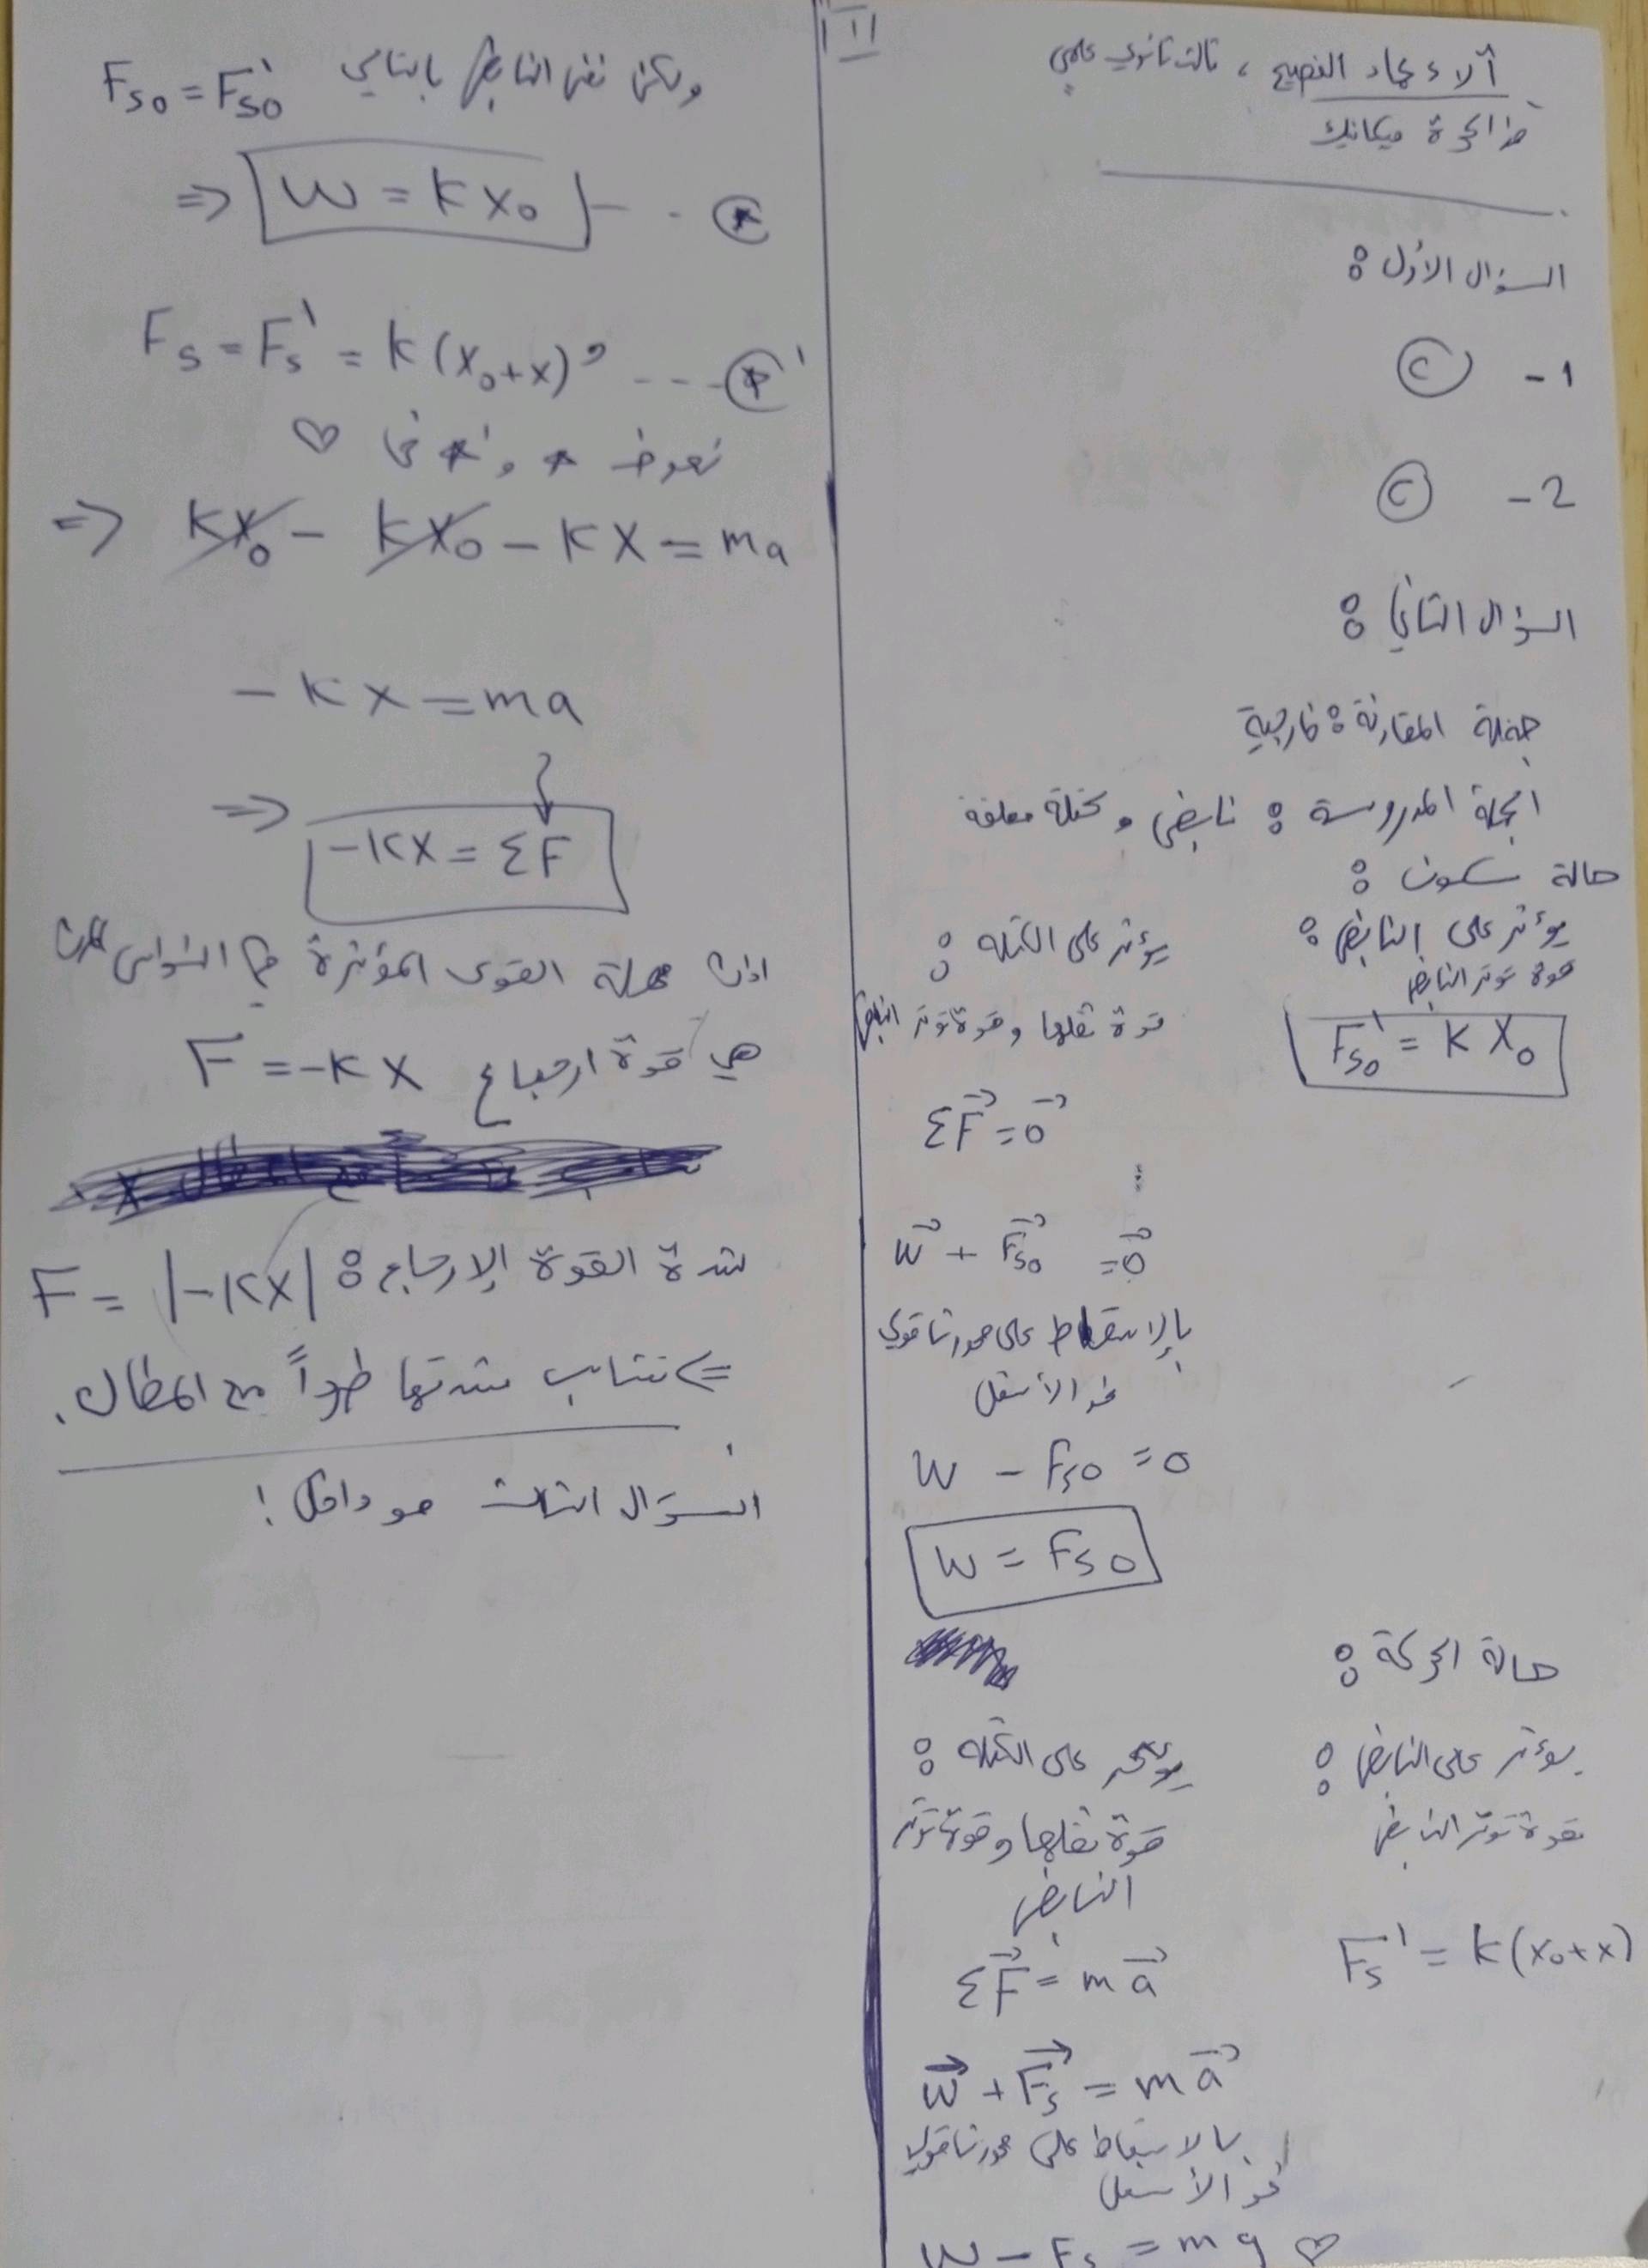 آلاء عماد الفصيح ، ثالث ثانوي علمي
مذاكرة ميكانيك
السؤال الأول :
1- C
2- C
السؤال الثاني :
جملة المقارنة : خارجية
الجملة المدروسة : نابض و كتلة معلقة
حالة سكون :
يؤثر على النابض :
قوة توتر النابض
F's0 = K X0
يؤثر على الكتلة :
قوة ثقلها وقوة توتر النابض
ΣF⃗ = 0⃗
W⃗ + F⃗s0 = 0⃗
بالإسقاط على محور شاقولي
نحو الأسفل
W - Fs0 = 0
W = Fs0
حالة الحركة :
يؤثر على النابض :
قوة توتر النابض
Fs' = k(x0+x)
يؤثر على الكتلة :
قوة ثقلها وقوة توتر
النابض
ΣF⃗ = m a⃗
W⃗ + F⃗s = m a⃗
بالإسقاط على محور شاقولي
نحو الأسفل
W - Fs = m a ♡
ولكن نفس النابض بالتالي Fs0 = F's0
=> W = K X0 -- ⊛
Fs = Fs' = K(X0+X) --- ⊛'
نعوض * و *' في ♡
=> KX0 - KX0 - KX = ma
- K X = ma
=> -KX = ΣF
اذن محصلة القوى المؤثرة في النواس المرن
هي قوة ارجاع F = -K X
شدة القوة الإرجاع : F = |-KX|
<= تتناسب شدتها طرداً مع المطال.
السؤال الثالث هو داخل !